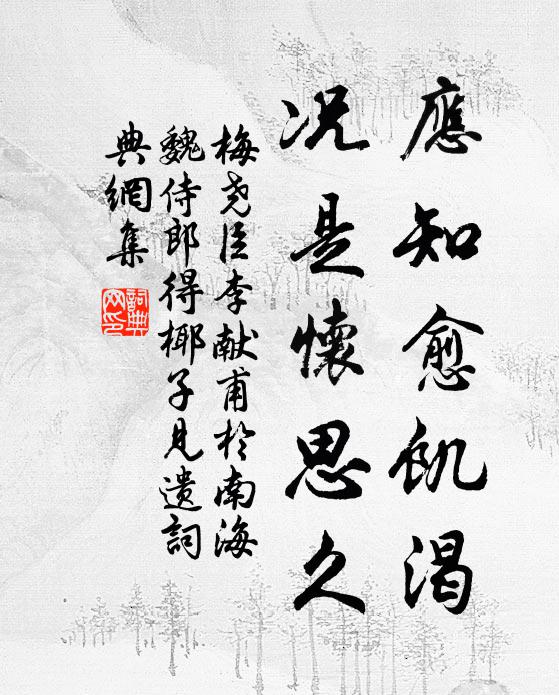 應知愈飢渴
况是懷思久
梅堯臣李献甫於南海
魏侍郎得椰子見遺詞
典網集
詞典
网印